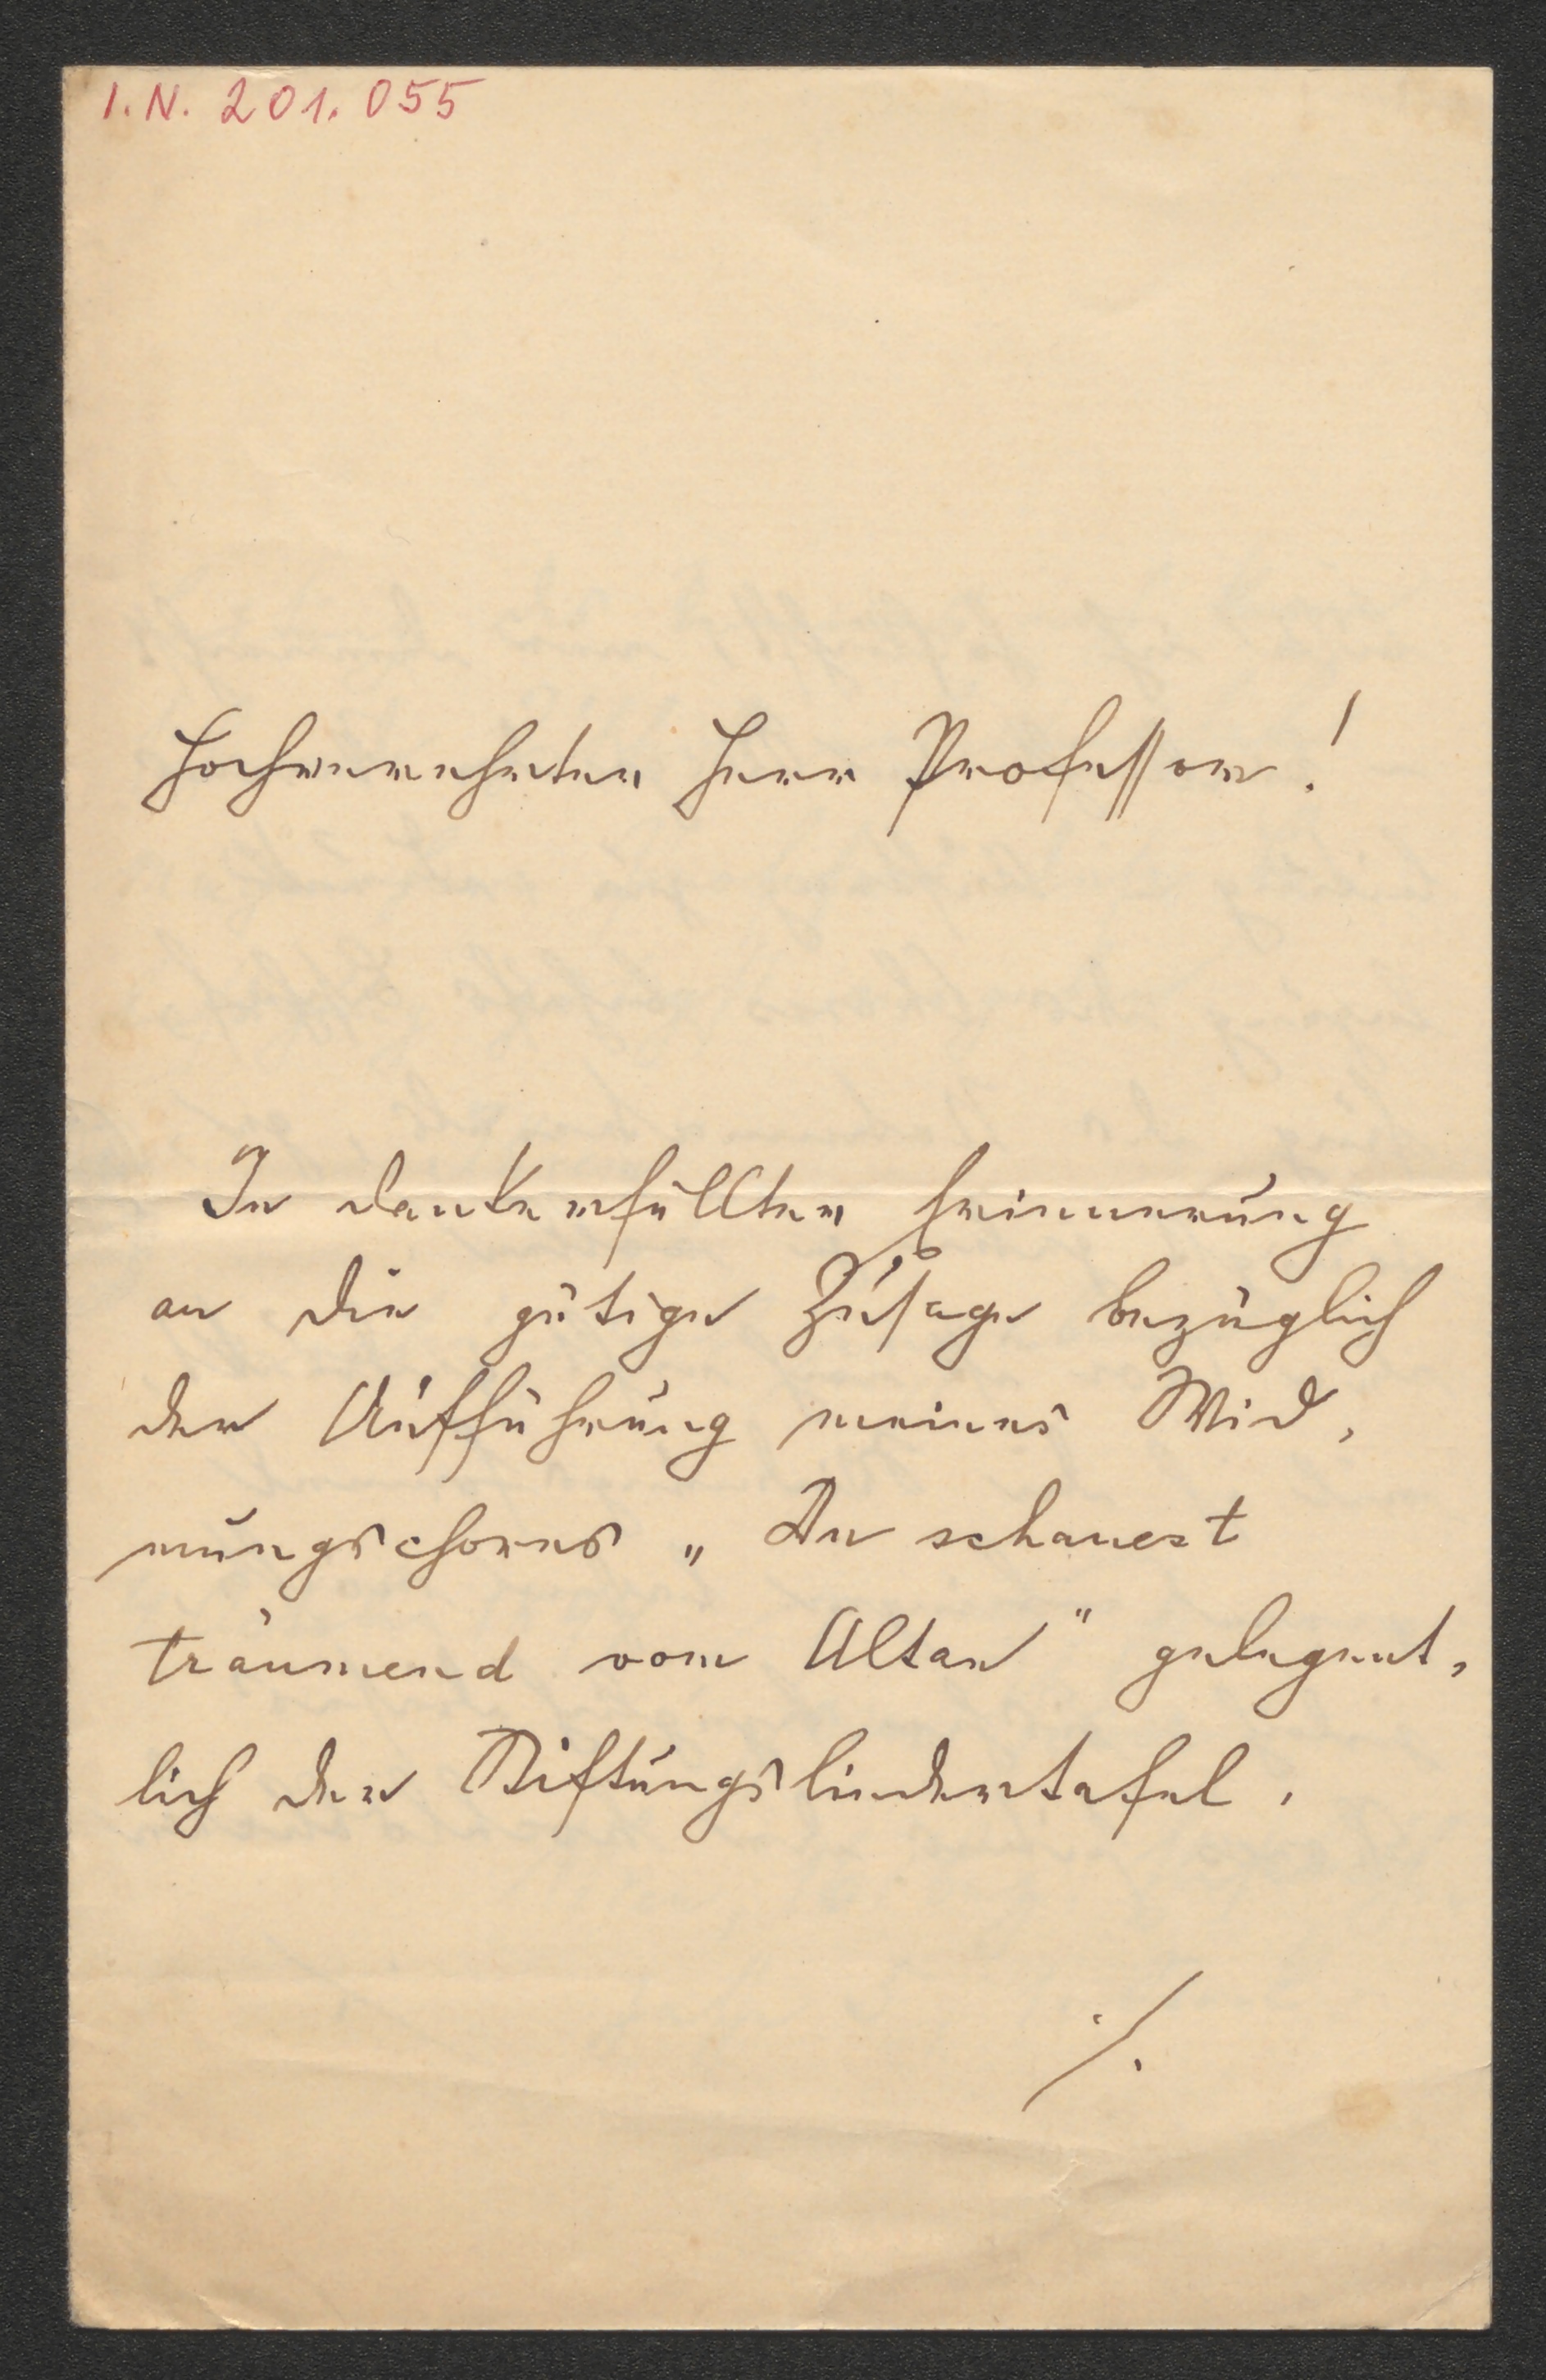 I.N. 201.055
Hochverehrter Herr Professor!
In dankerfüllter Erinnerung
an die gütige Zusage bezüglich
der Aufführung meines Wid,
mungschores „Du schauest
träumend vom Altan" gelegent,
lich der Stiftungsliedertafel,
./.